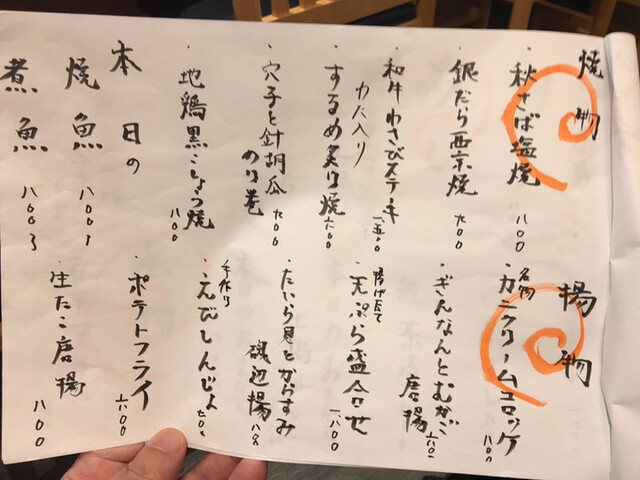 焼物
・秋さば塩焼 八〇〇
・銀だら西京焼 九〇〇
・和牛わさびステーキ 一五〇〇
わた入り
・するめ炙り焼 六〇〇
・穴子と針胡瓜
のり巻 九〇〇
・地鶏黒こしょう焼 八〇〇
本日の
焼魚 八〇〇〜
煮魚 八〇〇〜
揚物
名物
・カニクリームコロッケ 八〇〇
・ぎんなんとむかご
唐揚 六〇〇
揚げたて
・天ぷら盛合せ 一八〇〇
・たいら貝とからすみ
磯辺揚 八〇〇
手作り
・えびしんじょ 七〇〇
・ポテトフライ 六〇〇
・生たこ唐揚 八〇〇